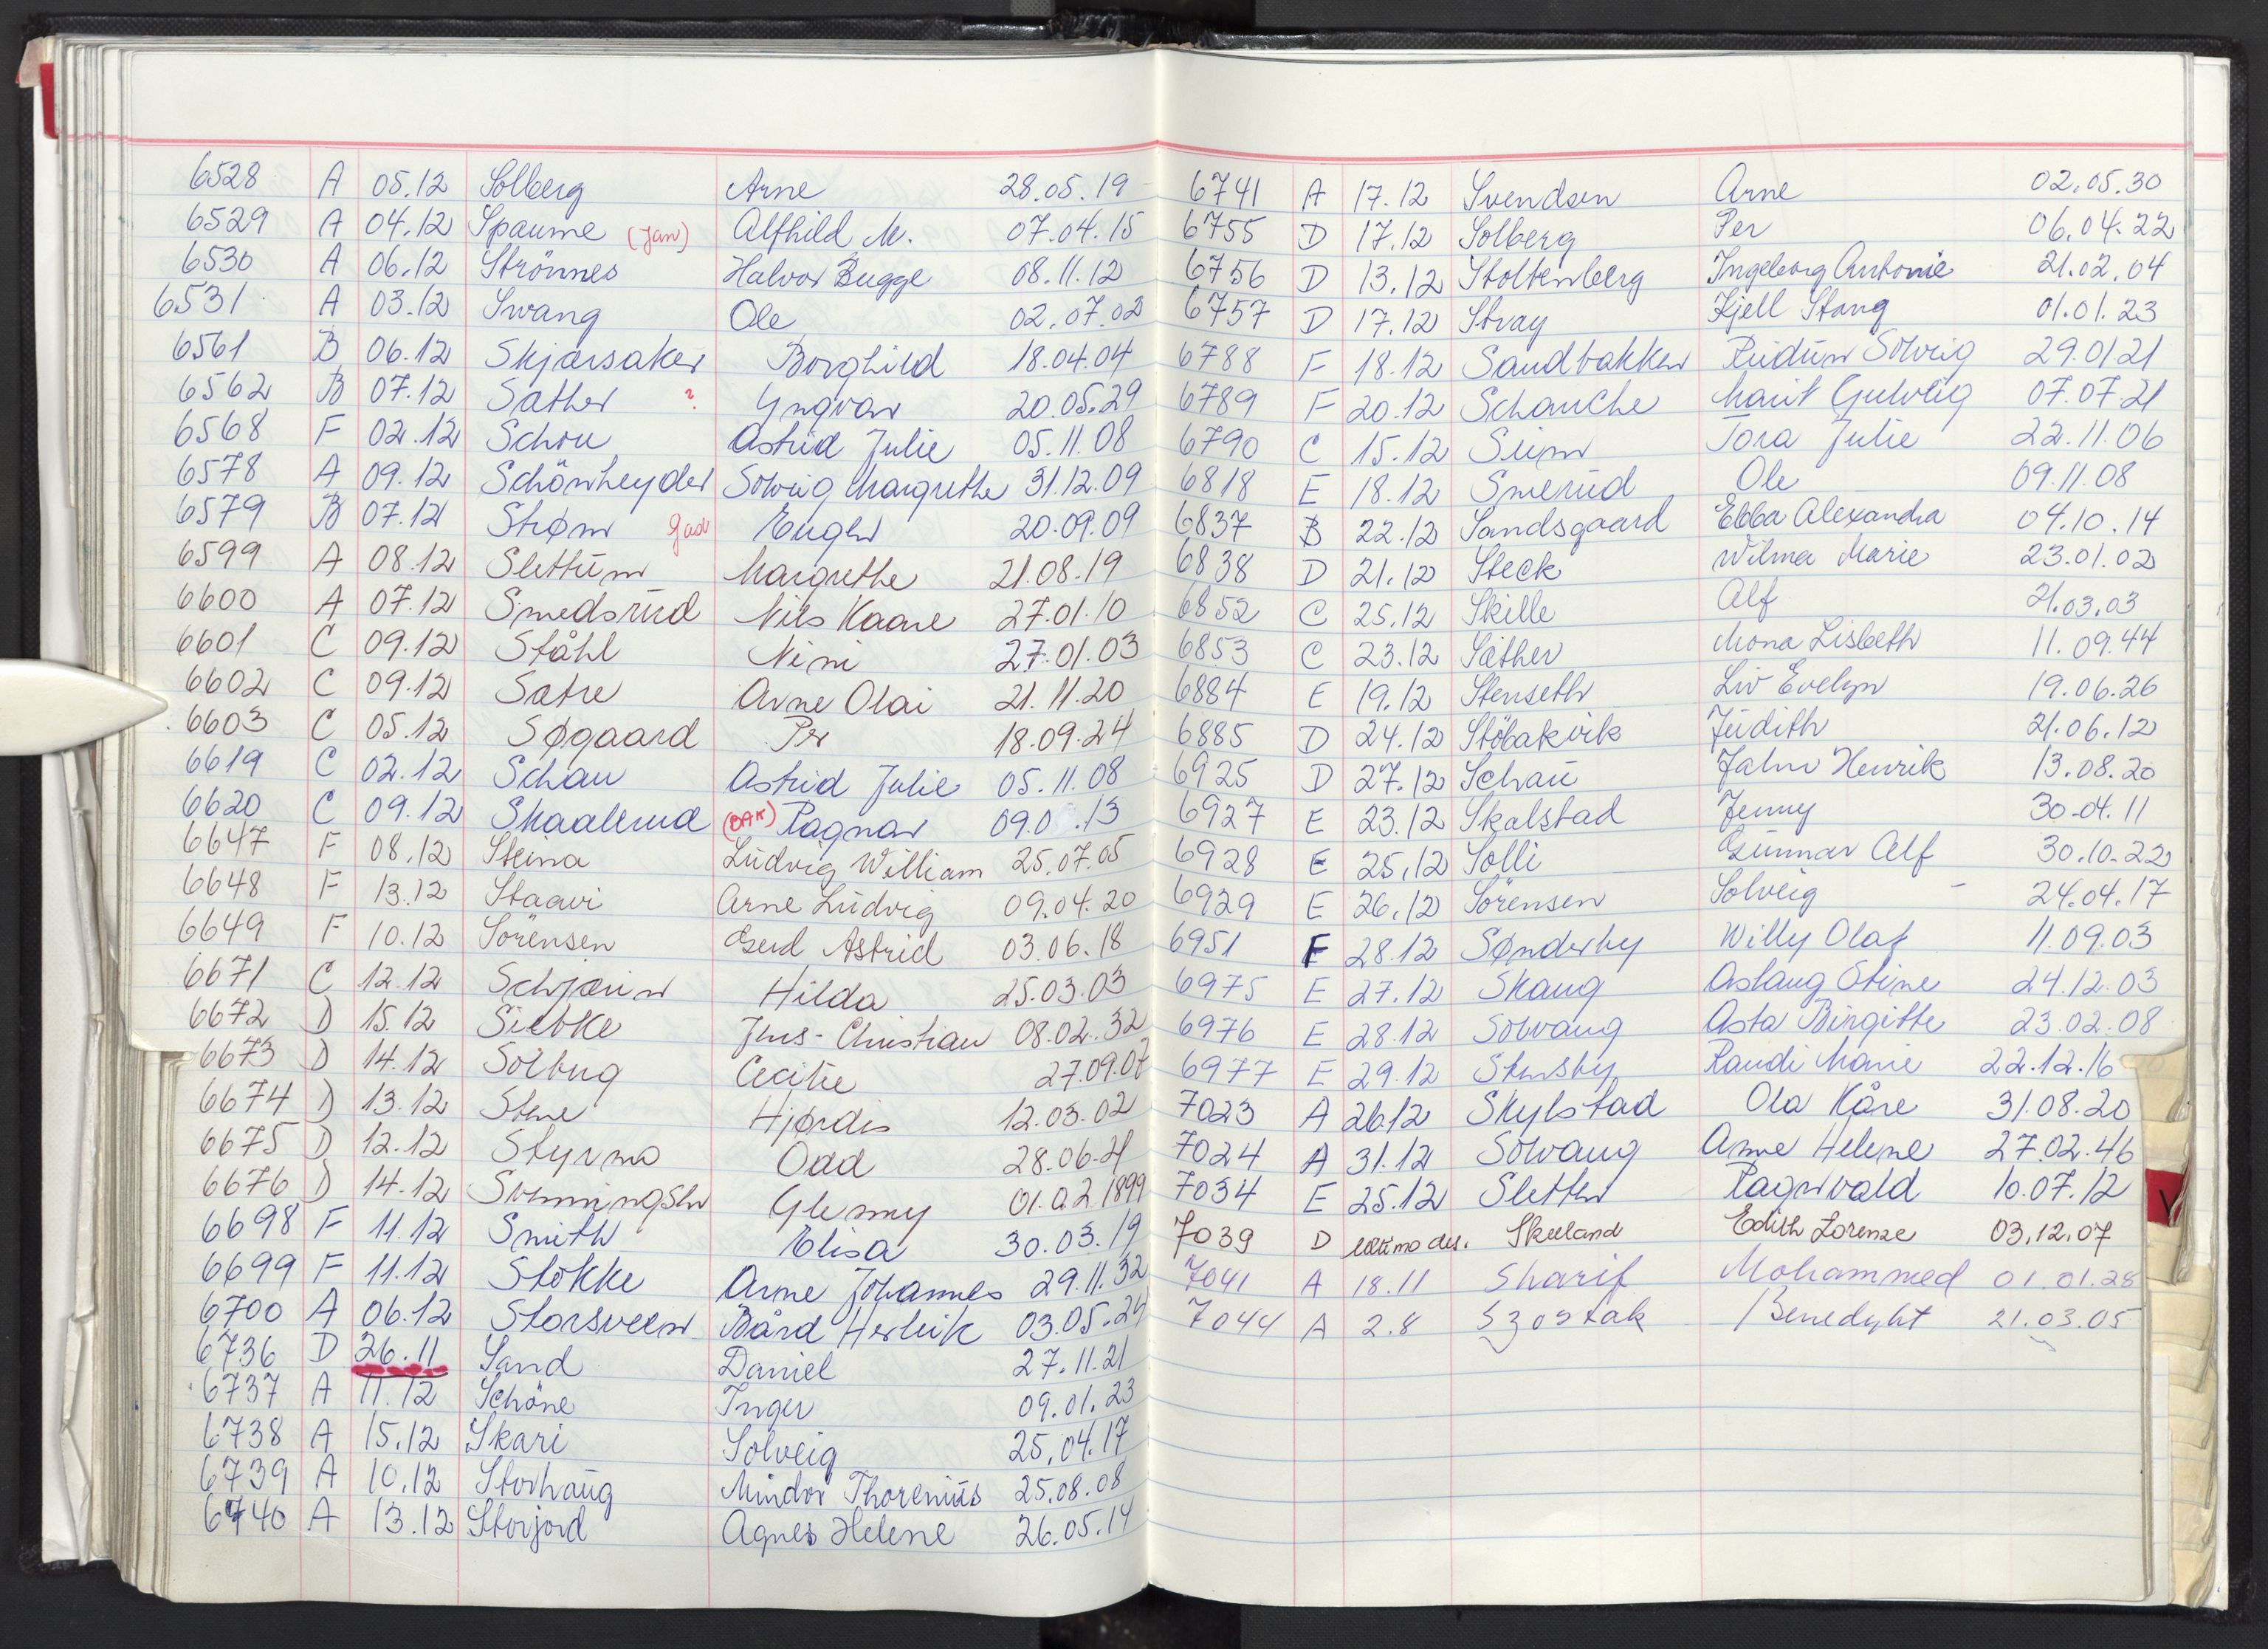 6528 A 05.12 Solberg Arne 28.05.19
6529 A 04.12 Spaume (Jan) Alfhild M. 07.04.15
6530 A 06.12 Strönnes Halvor Bugge 08.11.12
6531 A 03.12 Svang Ole 02.07.02
6561 B 06.12 Skjærsaker Borghild 18.04.04
6562 B 07.12 Sæther ? Yngvar 20.05.29
6568 F 02.12 Schou Astrid Julie 05.11.08
6578 A 09.12 Schönheyder Solveig Margrethe 31.12.09
6579 B 07.12 Strøm Eugen 20.09.09
6599 A 08.12 Slettum Margrethe 21.08.19
6600 A 07.12 Smedsrud Nils Kaare 27.01.10
6601 C 09.12 Ståhl Nini 27.01.03
6602 C 09.12 Sætre Arne Olai 21.11.20
6603 C 05.12 Søgaard Per 18.09.24
6619 C 02.12 Schau Astrid Julie 05.11.08
6620 C 09.12 Skaalerud (BAK) Ragnar 09.0 .13
6647 F 08.12 Steina Ludvig William 25.07.05
6648 F 13.12 Staavi Arne Ludvig 09.04.20
6649 F 10.12 Sörensen Gerd Astrid 03.06.18
6671 C 12.12 Schjærin Hilda 25.03.03
6672 D 15.12 Siebke Jens-Christian 08.02.32
6673 D 14.12 Solberg Cecilie 27.09.07
6674 D 13.12 Stene Hjørdis 12.03.02
6675 D 12.12 Styrmo Odd 28.06.21
6676 D 14.12 Svenningsen Glenny 01.02.1899
6698 F 11.12 Smith Elisa 30.03.19
6699 F 11.12 Stokke Arne Johannes 29.11.32
6700 A 06.12 Storsveen Bård Herleik 03.05.24
6736 D 26.11 Sand Daniel 27.11.21
6737 A 11.12 Schöne Inger 09.01.23
6738 A 15.12 Skari Solveig 25.04.17
6739 A 10.12 Storhaug Mindor Thorenius 25.08.08
6740 A 13.12 Storjord Agnes Helene 26.05.14
6741 A 17.12 Svendsen Arne 02.05.30
6755 D 17.12 Solberg Per 06.04.22
6756 D 13.12 Stoltenberg Ingeborg Antonie 21.02.04
6757 D 17.12 Stray Kjell Stang 01.01.23
6788 F 18.12 Sandbakken Reidun Solveig 29.01.21
6789 F 20.12 Schanche Marit Gudveig 07.07.21
6790 C 15.12 Seim Tora Julie 22.11.06
6818 E 18.12 Smerud Ole 09.11.08
6837 B 22.12 Sandsgaard Ebba Alexandra 04.10.14
6838 D 21.12 Steck Wilma Marie 23.01.02
6852 C 25.12 Skille Alf 21.03.03
6853 C 23.12 Sæther Mona Lisbeth 11.09.44
6884 E 19.12 Stenseth Liv Evelyn 19.06.26
6885 D 24.12 Stöbakvik Judith 21.06.12
6925 D 27.12 Schau Jahn Henrik 13.08.20
6927 E 23.12 Skalstad Jenny 30.04.11
6928 E 25.12 Solli Gunnar Alf 30.10.22
6929 E 26.12 Sörensen Solveig - 24.04.17
6951 F 28.12 Sønderby Willy Olaf 11.09.03
6975 E 27.12 Skaug Aslaug Stine 24.12.03
6976 E 28.12 Solvang Asta Birgitte 23.02.08
6977 E 29.12 Stensby Randi Marie 22.12.16
7023 A 26.12 Skylstad Ola Kåre 31.08.20
7024 A 31.12 Solvang Anne Helene 27.02.46
7034 E 25.12 Sletten Ragnvald 10.07.12
7039 D ultimo des. Skeeland Edith Lorenze 03.12.07
7041 A 18.11 Sharif Mohammed 01.01.28
7044 A 2.8 Szostak Benedykt 21.03.05